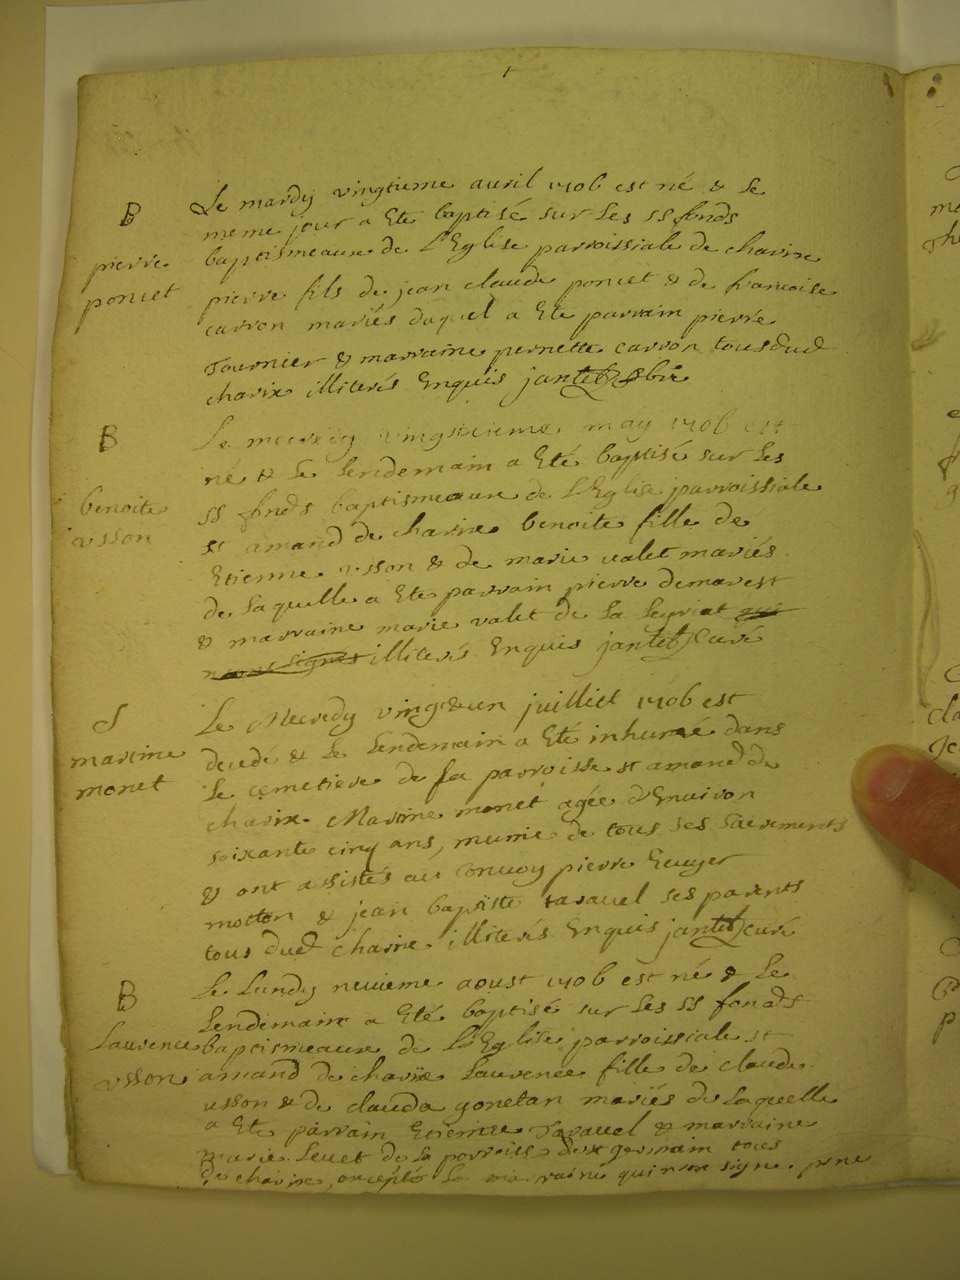 B
pierre
poncet
Le mardy vingtieme auril 1706 est né & le
meme jour a Eté baptisé sur les ss fonds
baptismeaux de l'Eglise parroissiale de charix
pierre fils de jean claude poncet & de francoise
carron mariés duquel a Eté parrain pierre
Tournier & marraine pernette carron tous dud
charix illiterés Enquis jantet
B
benoite
usson
Le mecredy may 1706 est
né & le lendemain a Eté baptisé sur les
ss fonds baptismeaux de l'Eglise parroissiale
st amand de charix benoite fille de
Etienne usson & de marie valet mariés
de laquelle a Ete parrain pierre demarest
& marraine marie valet de la leyriat
illiterés Enquis jantet curé
S
maxime
monet
Le Mecredy vingt & un juilliet 1706 est
decedé & le lendemain a Eté inhumé dans
le cemetiere de la parroisse st amand de
charix Maxime monet agée d'Enuiron
soixante cinq ans, munie de tous ses sacrements
& ont assistés au conuoy pierre
motton & jean baptiste tarauel ses parents
tous dud charix illiterés Enquis jantet curé
B
Laurence
usson
Le Lundy neuieme aoust 1706 est né & le
Lendemain a Eté baptisé sur les ss fonds
baptismeaux de l'Eglise parroissiale st
amand de charix Laurence fille de claude
usson & de clauda gonetan mariés de laquelle
a Ete parrain Etienne Tarauel & marraine
marie Leuet de la parroisse de st germain tous
de charix, excepté la marraine qui signe